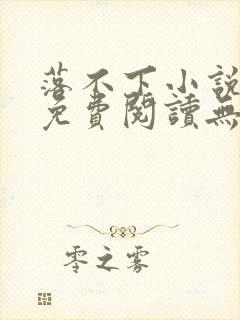 落不下小說
免費閱讀無
零之雾